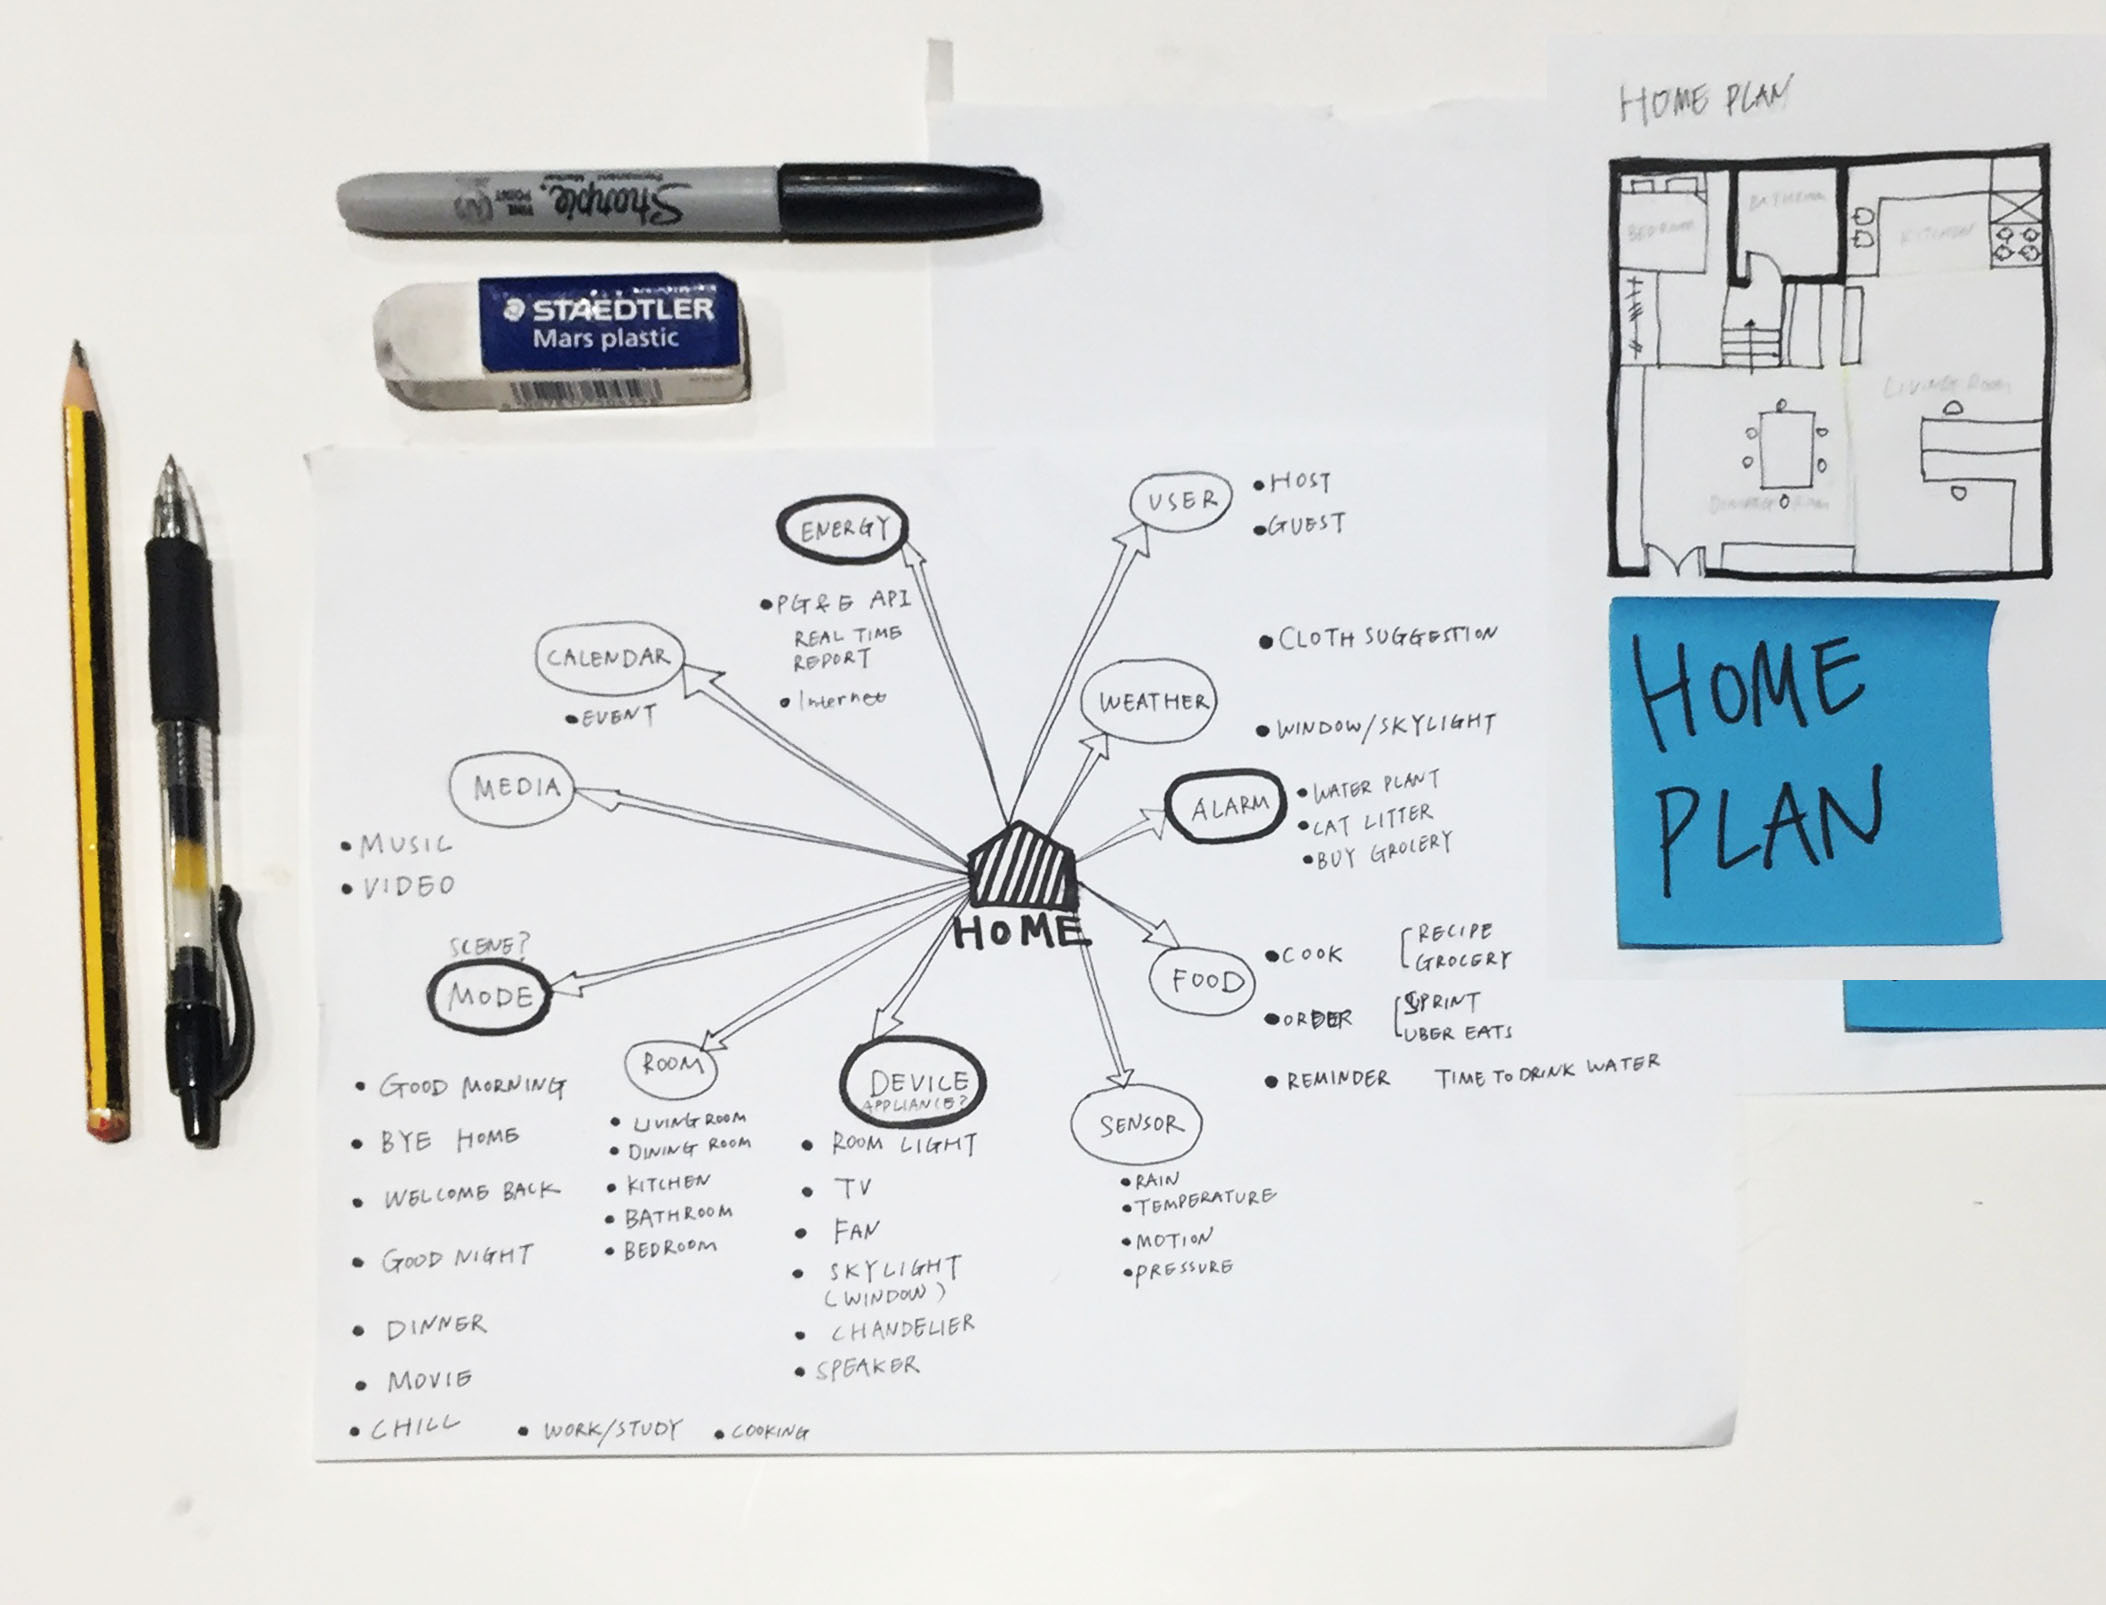 HOME PLAN
BEDROOM
BATHROOM
KITCHEN
LIVING ROOM
HOME
PLAN
Sharpie.
Permanent
Marker
FINE
POINT
STAEDTLER
Mars plastic
ENERGY
• PG&E API
REAL TIME
REPORT
• Internet
USER
• HOST
• GUEST
CALENDAR
• EVENT
WEATHER
• CLOTH SUGGESTION
• WINDOW/SKYLIGHT
MEDIA
• MUSIC
• VIDEO
ALARM
• WATER PLANT
• CAT LITTER
• BUY GROCERY
HOME
SCENE?
MODE
• GOOD MORNING
• BYE HOME
• WELCOME BACK
• GOOD NIGHT
• DINNER
• MOVIE
• CHILL • WORK/STUDY • COOKING
ROOM
• LIVING ROOM
• DINING ROOM
• KITCHEN
• BATHROOM
• BEDROOM
DEVICE
APPLIANCE?
• ROOM LIGHT
• TV
• FAN
• SKYLIGHT
(WINDOW)
• CHANDELIER
• SPEAKER
SENSOR
• RAIN
• TEMPERATURE
• MOTION
• PRESSURE
FOOD
• COOK [RECIPE
GROCERY
• ORDER [SPRINT
UBER EATS
• REMINDER TIME TO DRINK WATER